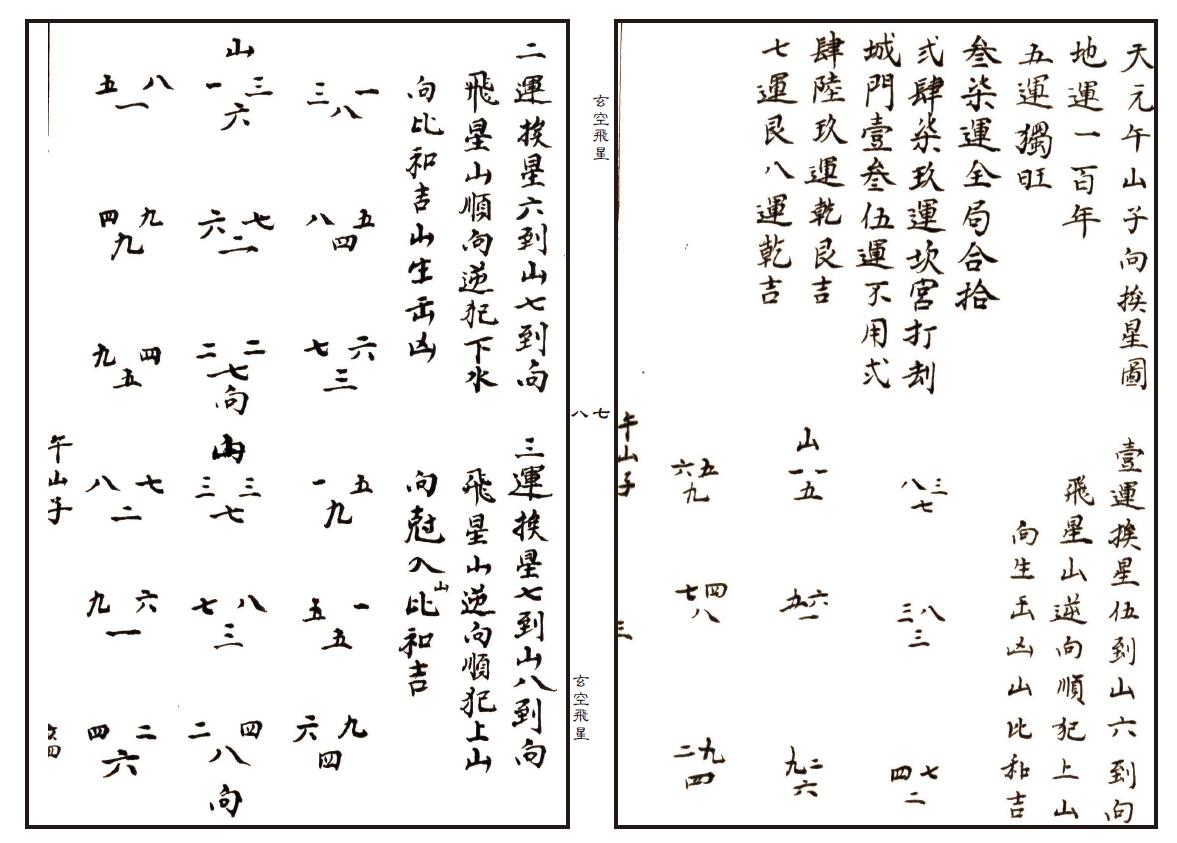 天元午山子向挨星圖
地運一百年
五運獨旺
叁柒運全局合拾
弍肆柒玖運坎宮打刼
城門壹叁伍運不用弍
肆陸玖運乾艮吉
七運艮八運乾吉
壹運挨星伍到山六到向
飛星山逆向順犯上山
向生出凶山比和吉
八三
七
三八
三
四七
二
山
一一
五
五六
一
九二
六
六五
九
七四
八
二九
四
午山子
三
玄空飛星
八七
玄空飛星
二運挨星六到山七到向
飛星山順向逆犯下水
向比和吉山生出凶
三一
八
八五
四
七六
三
山
一三
六
六七
二
二二
七
向
五八
一
四九
九
九四
五
三運挨星七到山八到向
飛星山逆向順犯上山
向尅入山比和吉
一五
九
五一
五
六九
四
山
三三
七
七八
三
二四
八
向
八七
二
九六
一
四二
六
午山子
四